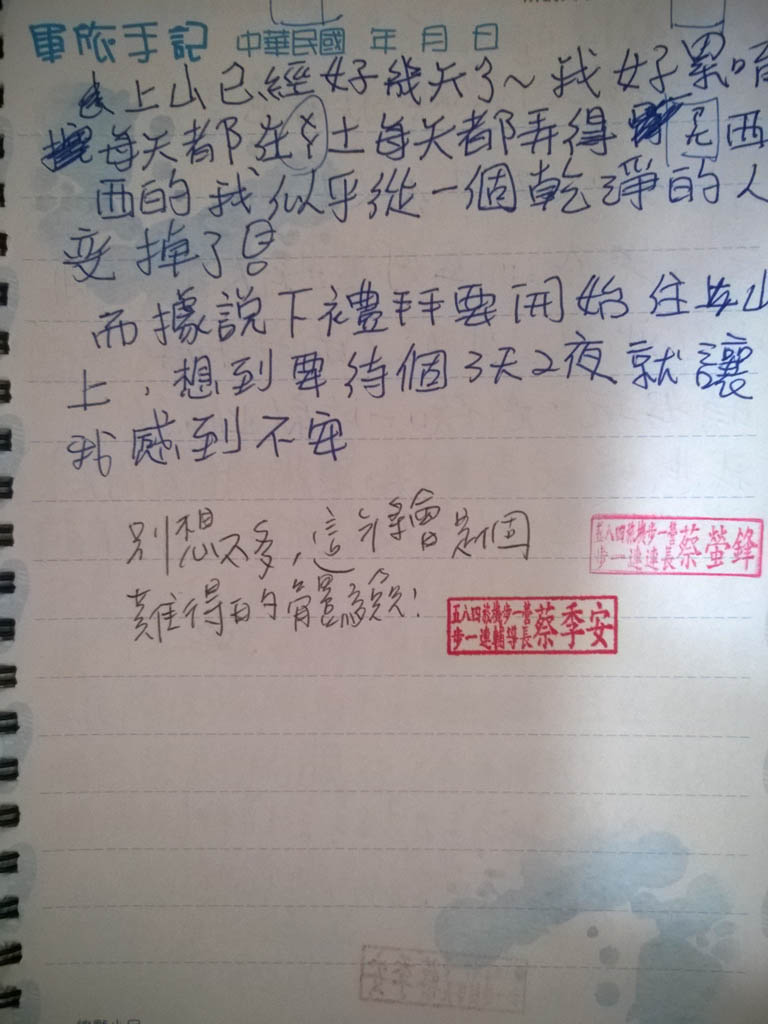 軍旅手記 中華民國 年 月 日
上山已經好幾天了~我好累唷
每天都在ㄔ土每天都弄得ㄹㄜ西
西的我似乎從一個乾淨的人
變掉了!
而據說下禮拜要開始住在山
上,想到要待個3天2夜就讓
我感到不安
別想太多,這將會是個
難得的體驗!
五八四旅機步一營
步一連連長蔡螢鋒
五八四旅機步一營
步一連輔導長蔡季安